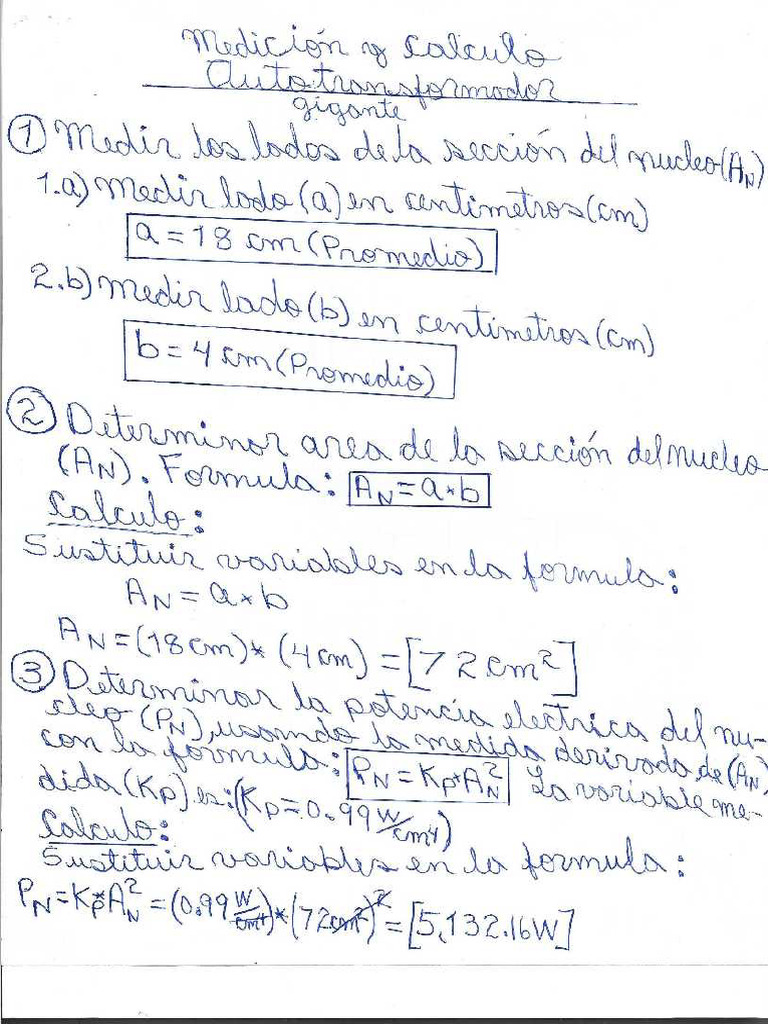 Medición y Calculo
Autotransformador
gigante
① Medir los lados de la sección del nucleo (A_N)
1.a) Medir lado (a) en centimetros (cm)
a = 18 cm (Promedio)
2.b) Medir lado (b) en centimetros (cm)
b = 4 cm (Promedio)
② Determinar area de la sección del nucleo
(A_N). Formula: A_N = a * b
Calculo:
Sustituir variables en la formula:
A_N = a * b
A_N = (18 cm) * (4 cm) = [72 cm²]
③ Determinar la potencia electrica del nu-
cleo (P_N), usando la medida derivada de (A_N)
con la formula: P_N = K_P * A_N² La variable me-
dida (K_P) es: (K_P = 0.99 W/cm⁴)
Calculo:
Sustituir variables en la formula:
P_N = K_P * A_N² = (0.99 W/cm⁴) * (72 cm²)² = [5,132.16 W]